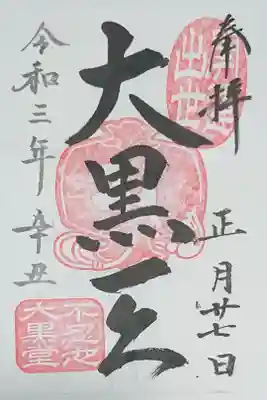 奉拝
出世
正月廿七日
大黒天
令和三年 辛丑
不忍池
大黒堂